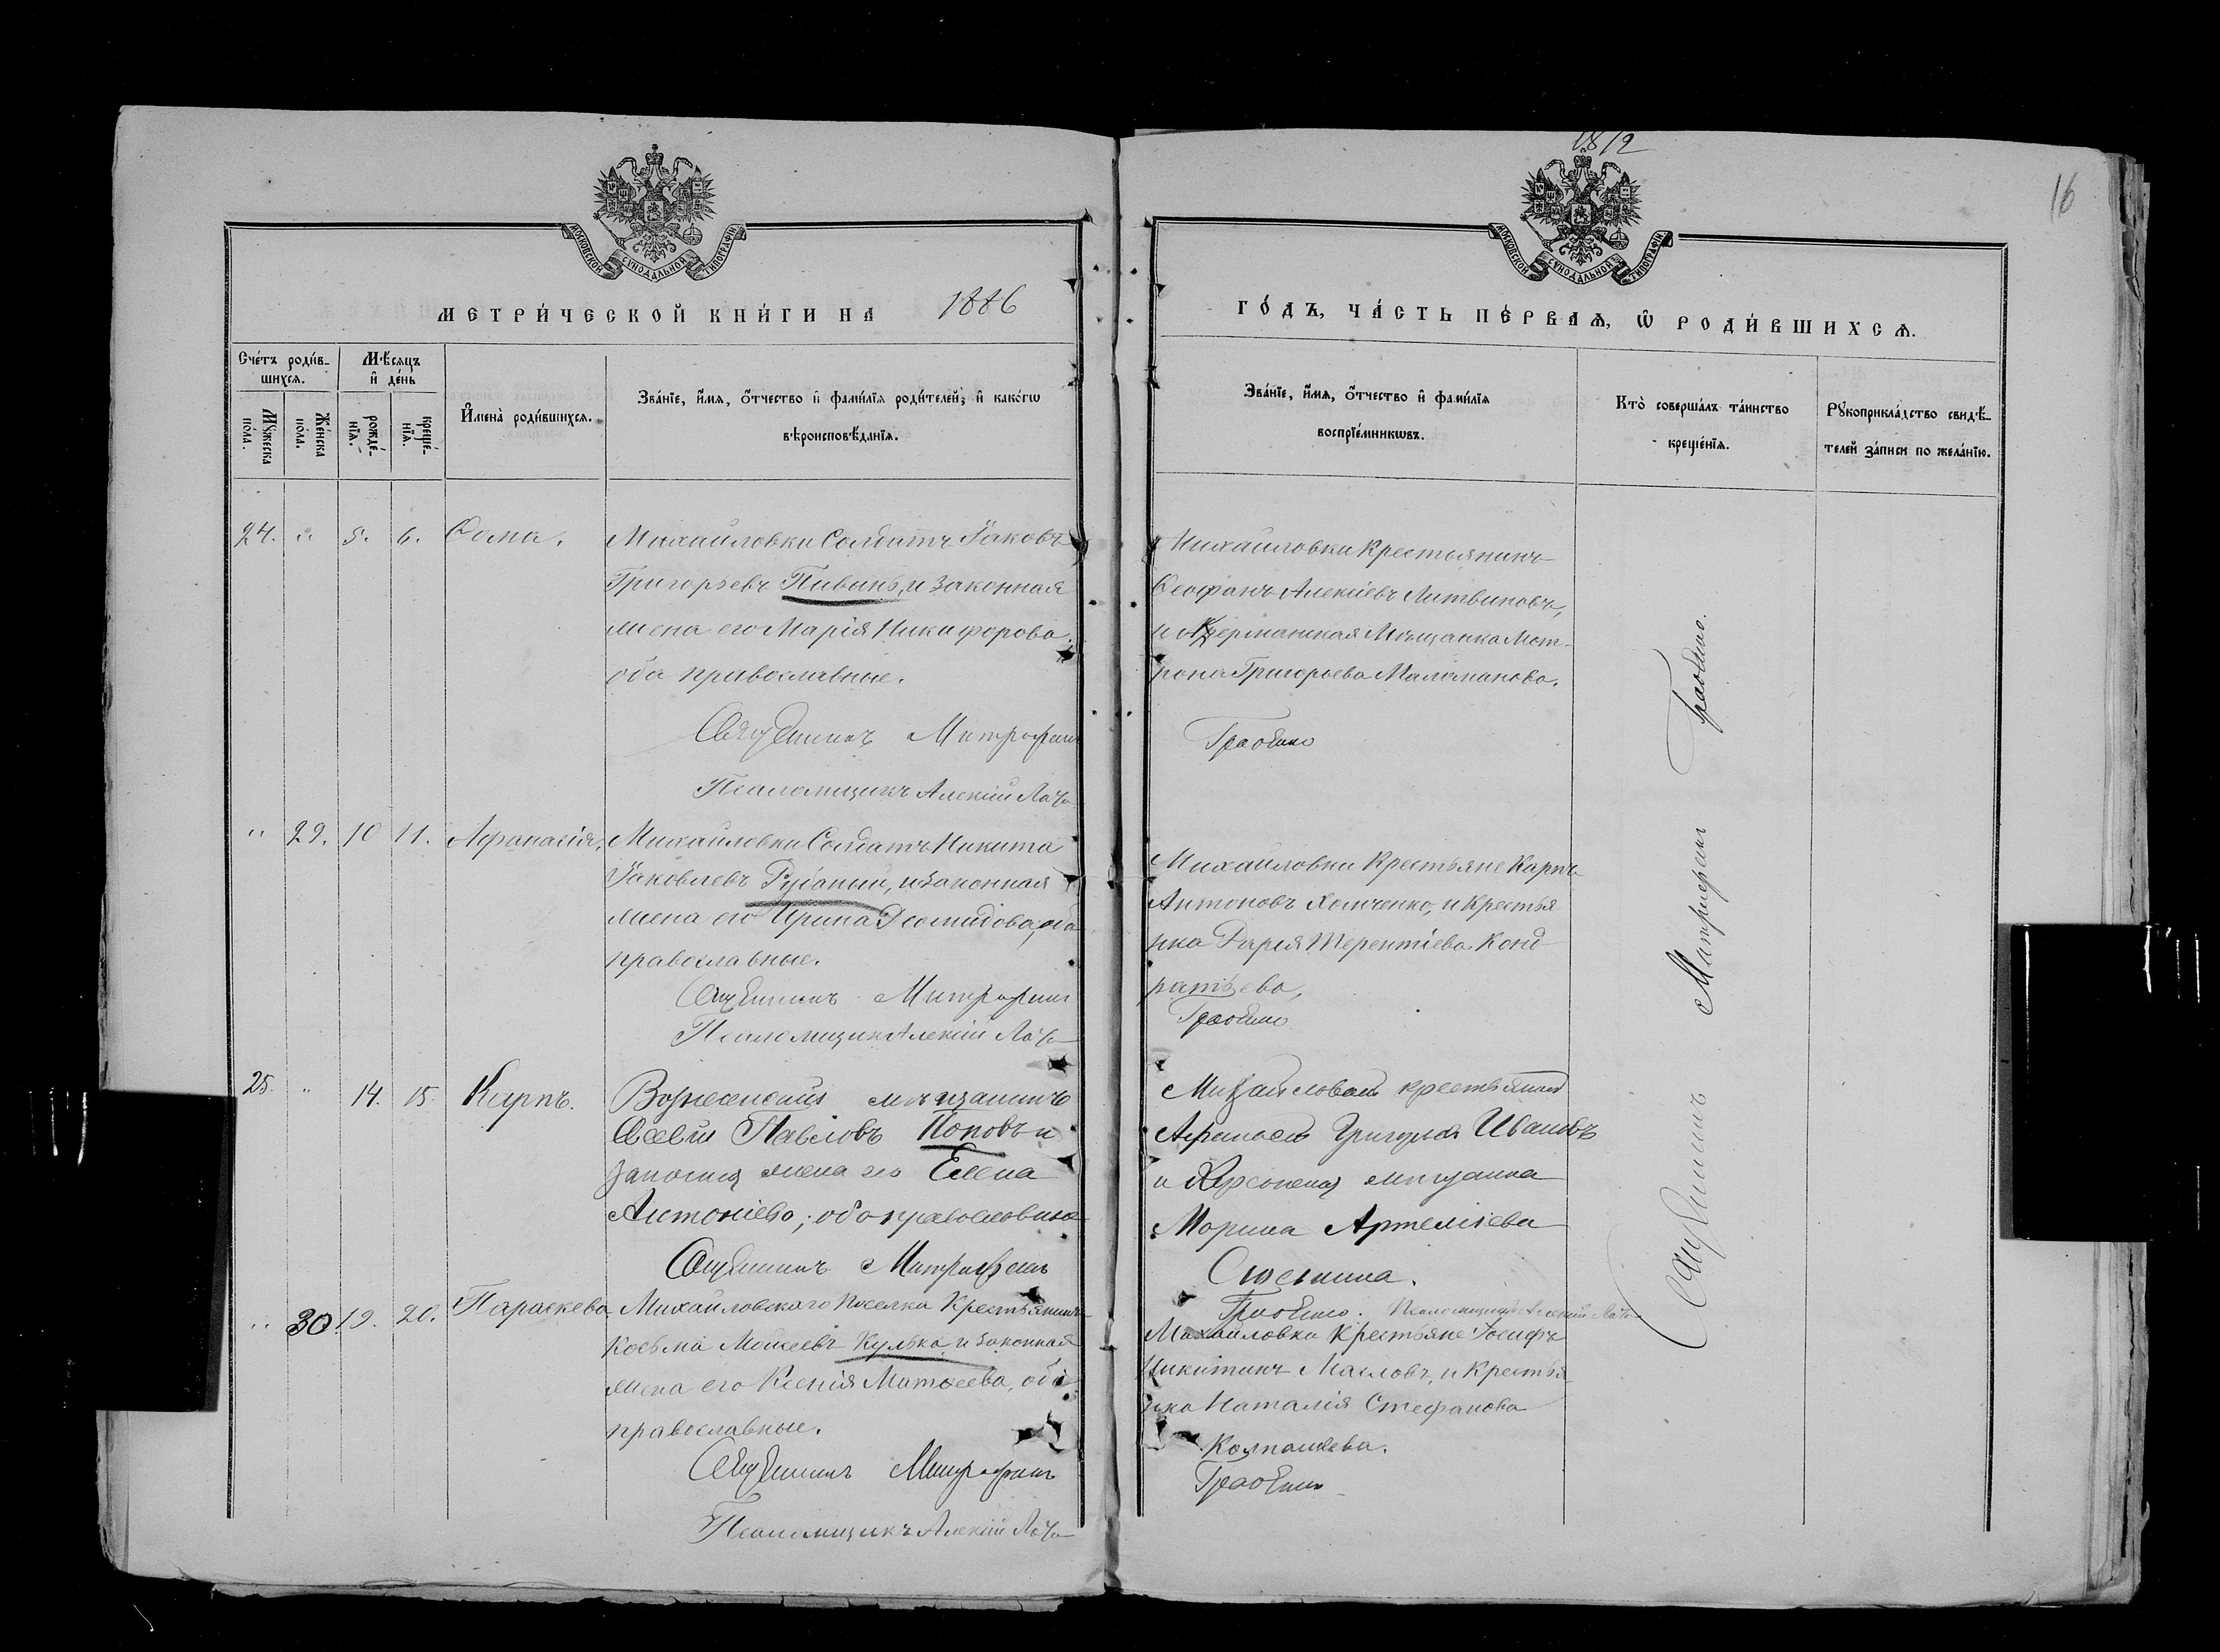 1812
16
МОСКОВСКОЙ СѴНОДАЛЬНОЙ ТИПОГРАФІИ
МОСКОВСКОЙ СѴНОДАЛЬНОЙ ТИПОГРАФІИ
МЕТРИ́ЧЕСКОЙ КНИ́ГИ НА 1886
ГО́ДЪ, ЧА́СТЬ ПЕ́РВАѦ, Ѿ РОДИ́ВШИХСѦ.
Сче́тъ роди́в-
шихсѧ.
Мѣ́сѧцъ
и҆ де́нь
Мꙋ́жеска
по́ла.
Же́нска
по́ла.
рожде́-
нїѧ.
креще́-
нїѧ.
И҆мена̀ роди́вшихсѧ.
Зва́нїе, и҆́мѧ, ѻ҆́тчество и҆ фами́лїѧ роди́телей, и҆ како́гѡ
вѣроисповѣ́данїѧ.
Зва́нїе, и҆́мѧ, ѻ҆́тчество и҆ фами́лїѧ
воспрїе́мникѡвъ.
Кто̀ соверша́лъ та́инство
креще́нїѧ.
Рꙋкоприкла́дство свидѣ́-
телей за́писи по жела́нїю.
24. " 5. 6. Ѳома.
Михайловки Солдатъ Іаковъ
Григорьевъ Пивень, и законная
жена его Марія Никифорова.
оба православные.
Священникъ Митрофанъ
Псаломщикъ Алексій
Михайловки Крестьянинъ
Ѳеофанъ Алексіевъ Литвиновъ,
и Мѣщанка Мот-
рона Григорьева Маломанова.
" 29. 10 11. Афанасія.
Михайловки Солдатъ Никита
Іаковлевъ и законная
жена его Ирина Діомидова, оба
православные.
Священникъ Митрофанъ
Псаломщикъ Алексій
Михайловки Крестьяне Карпъ
Антоновъ Хомченко, и Крестья
нка Дарія Терентіева Конд
ратьева,
25. " 14. 15. Карпъ.
Вознесенскій мѣщанинъ
Павловъ Поповъ и
законная жена его Елена
Антоніева; оба православные
Священникъ Митрофанъ
крестьянинъ
Григорьевъ Ивановъ
и Херсонская мѣщанка
Марина Артеміева
Псаломщикъ Алексій
" 30. 19. 20. Параскева.
Михайловскаго Поселка Крестьянинъ
Косьма Моисеевъ Кулька и законная
жена его Ксенія Матѳеева, оба
православные.
Священникъ Митрофанъ
Псаломщикъ Алексій
Михайловки Крестьяне Іосифъ
Никитинъ Масловъ, и Крестья
нка Наталія Стефанова
Колпащева.
Священникъ Митрофанъ